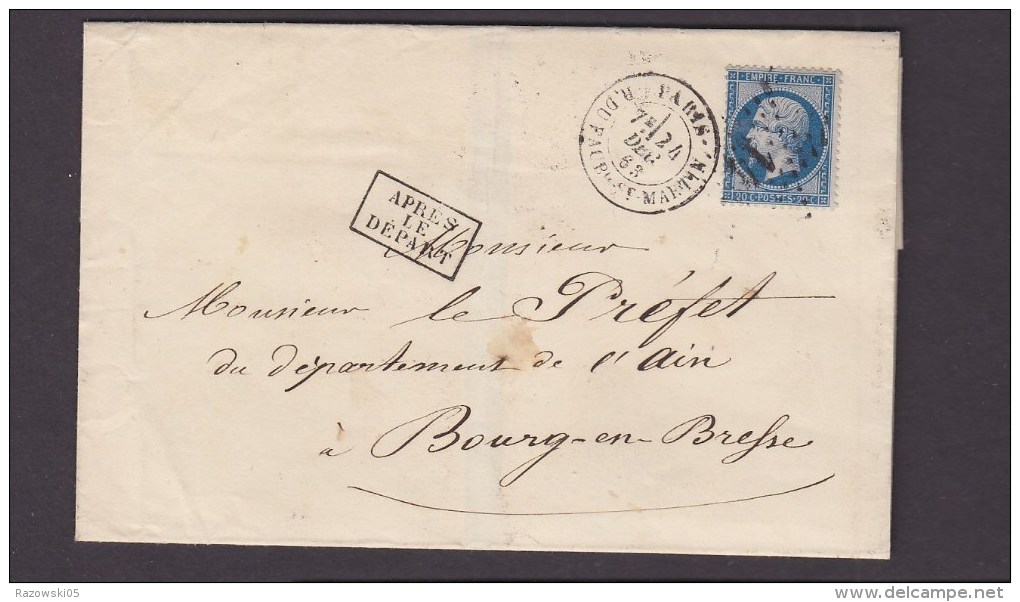 EMPIRE FRANC
20 C POSTES 20 C
PARIS
R. DU FAUBG ST-MARTIN
7E
24
DEC.
63
APRES
LE
DÉPART
Monsieur
Monsieur le Préfet
du département de l'Ain
à Bourg-en-Bresse
Razowski05
delcampe.net